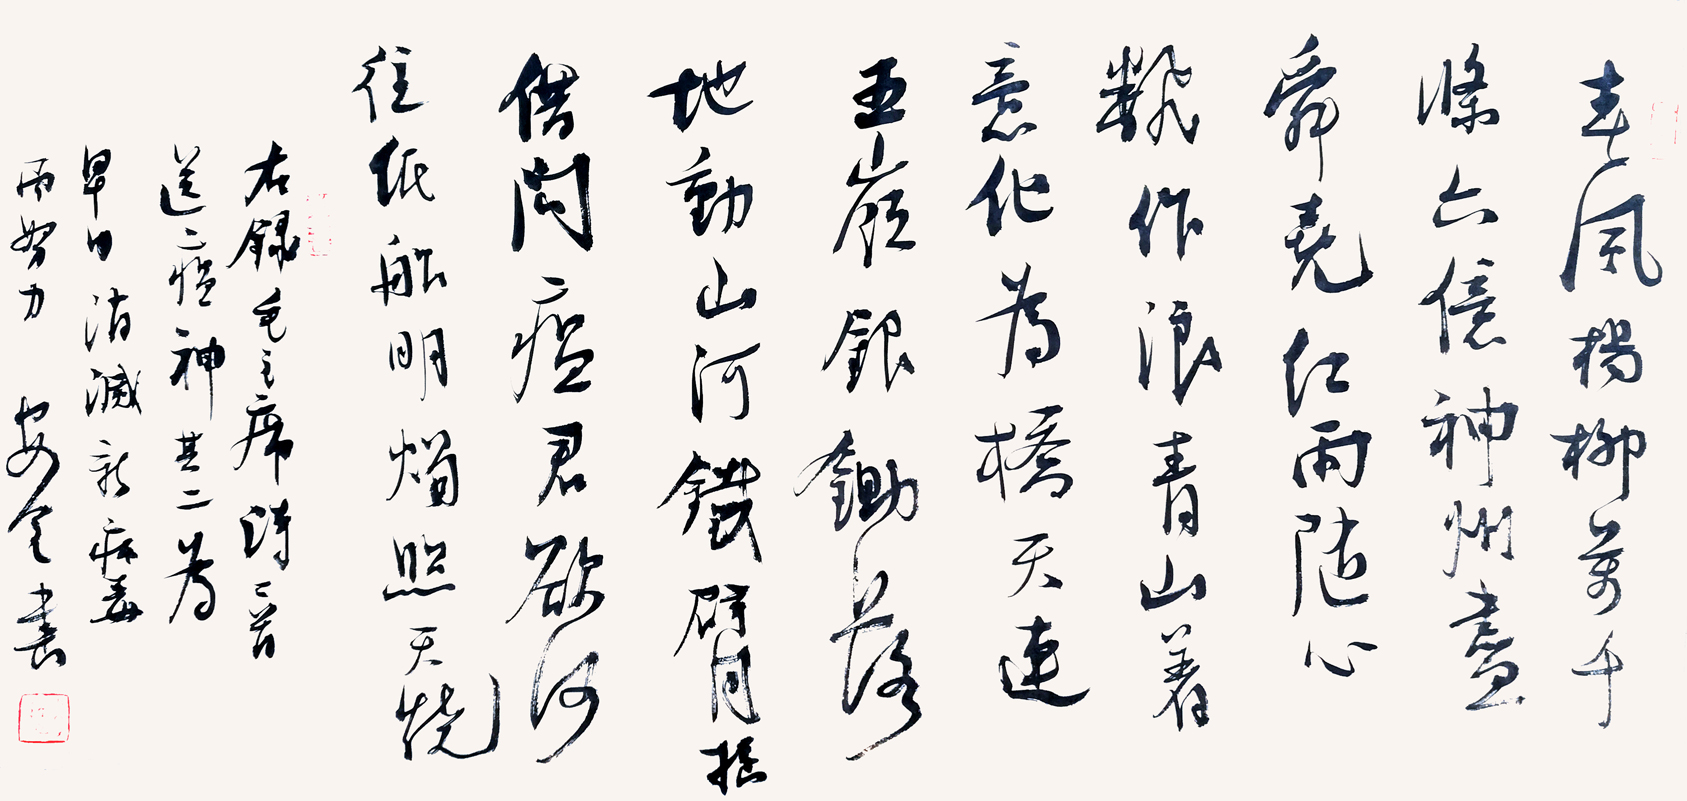 春風楊柳萬千
條六億神州盡
舜堯紅雨随心
翻作浪青山着
意化為橋天連
五嶺銀鋤落
地動山河鐵臂摇
借問瘟君欲何
往紙船明燭照天燒
右録毛主席詩二首
送瘟神其二為
早日消滅新病毒
而努力 書